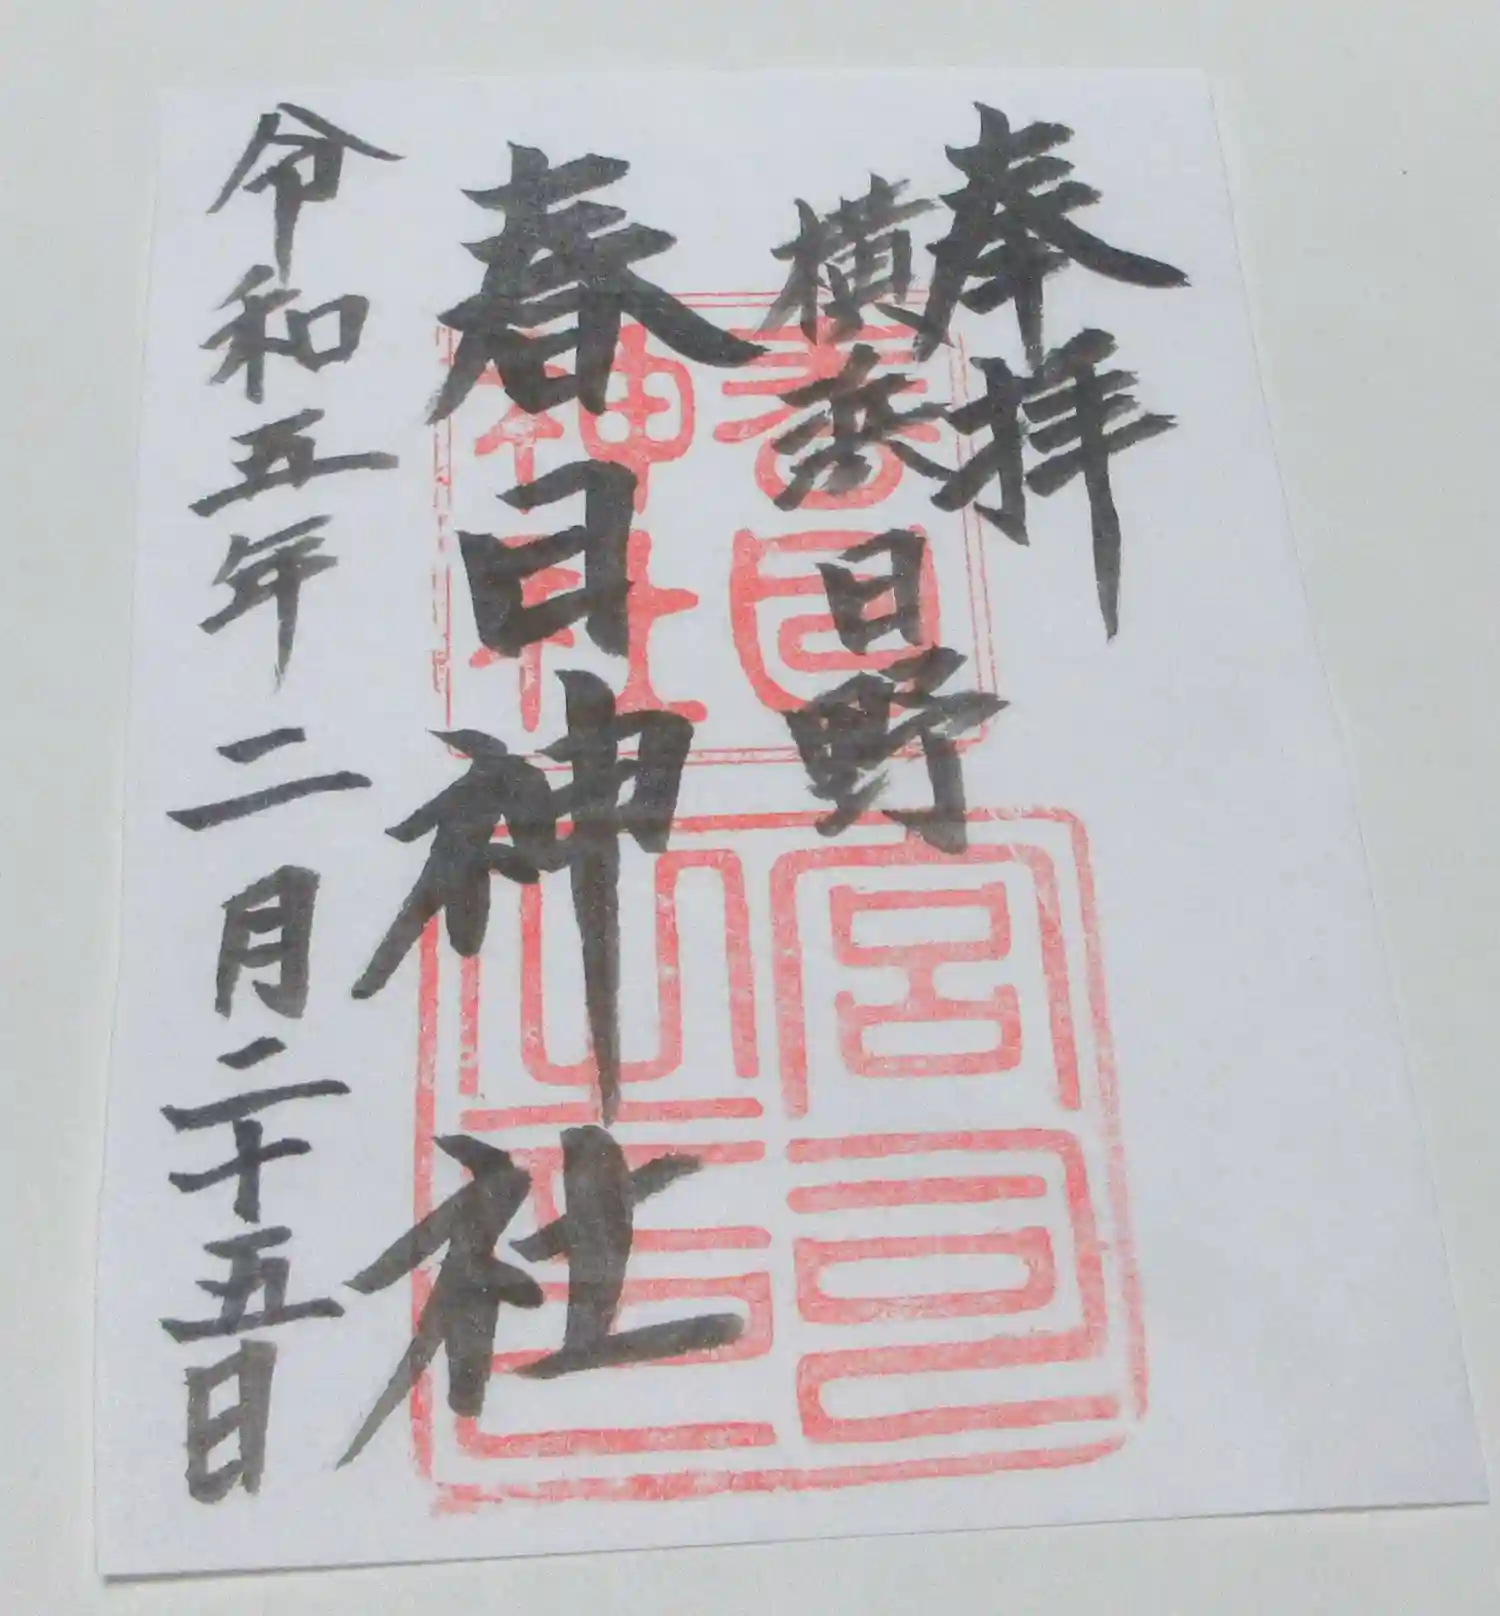 奉拝
横浜日野
春日神社
令和五年二月二十五日
春日神社
宮司之印